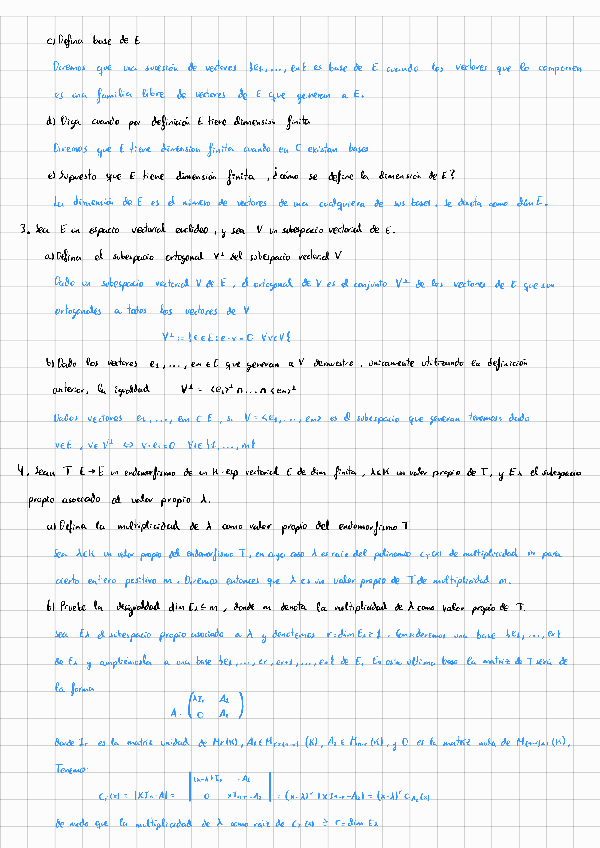 c) Defina base de E
Diremos que una sucesión de vectores {e₁,...,eₙ} es base de E cuando los vectores que lo componen
es una familia libre de vectores de E que generan a E.
d) Diga cuando por definición E tiene dimension finita
Diremos que E tiene dimension finita cuando en E existan bases
e) Supuesto que E tiene dimensión finita, ¿cómo se define la dimensión de E?
La dimensión de E es el número de vectores de una cualquiera de sus bases, se denota como dim E.
3. Sea E un espacio vectorial euclídeo, y sea V un subespacio vectorial de E.
a) Defina el subespacio ortogonal V⊥ del subespacio vectorial V
Dado un subespacio vectorial V de E, el ortogonal de V es el conjunto V⊥ de los vectores de E que son
ortogonales a todos los vectores de V
V⊥ := {e ∈ E : e·v = 0 ∀v∈V}
b) Dado los vectores e₁,...,eₘ ∈ E que generan a V demuestre, unicamente utilizando la definición
anterior, la igualdad V⊥ = <e₁>⊥ ∩ ... ∩ <eₘ>⊥
Dados vectores e₁,...,eₘ ∈ E, si V = <e₁,...,eₘ> es el subespacio que generan tenemos dado
v∈E, v∈V⊥ ⇔ v·eᵢ = 0 ∀i∈{1,...,m}
4. Sean T E→E un endomorfismo de un K-esp vectorial E de dim finita, λ∈K un valor propio de T, y Eλ el subespacio
propio asociado al valor propio λ.
a) Defina la multiplicidad de λ como valor propio del endomorfismo T
Sea λ∈K un valor propio del endomorfismo T, en cuyo caso λ es raíz del polinomio c_T(x) de multiplicidad m para
cierto entero positivo m. Diremos entonces que λ es un valor propio de T de multiplicidad m.
b) Pruebe la desigualdad dim Eλ ≤ m, donde m denota la multiplicidad de λ como valor propio de T.
Sea Eλ el subespacio propio asociado a λ y denotemos r = dim Eλ ≥ 1. Consideremos una base {e₁,...,eᵣ}
de Eλ y ampliemosla a una base {e₁,...,eᵣ,eᵣ₊₁,...,eₙ} de E. En esta ultima base la matriz de T será de
la forma
A = (λIᵣ A₁
0 A₂)
donde Iᵣ es la matriz unidad de Mᵣ(K), A₁ ∈ Mᵣₓ₍ₙ₋ᵣ₎(K), A₂ ∈ Mₙ₋ᵣ(K), y 0 es la matriz nula de M₍ₙ₋ᵣ₎ₓᵣ(K).
Tenemos:
c_T(x) = |xIₙ - A| = |(x-λ)Iᵣ -A₁
0 xIₙ₋ᵣ - A₂| = (x-λ)ʳ |xIₙ₋ᵣ - A₂| = (x-λ)ʳ c_A₂(x)
de modo que la multiplicidad de λ como raiz de c_T(x) ≥ r = dim Eλ